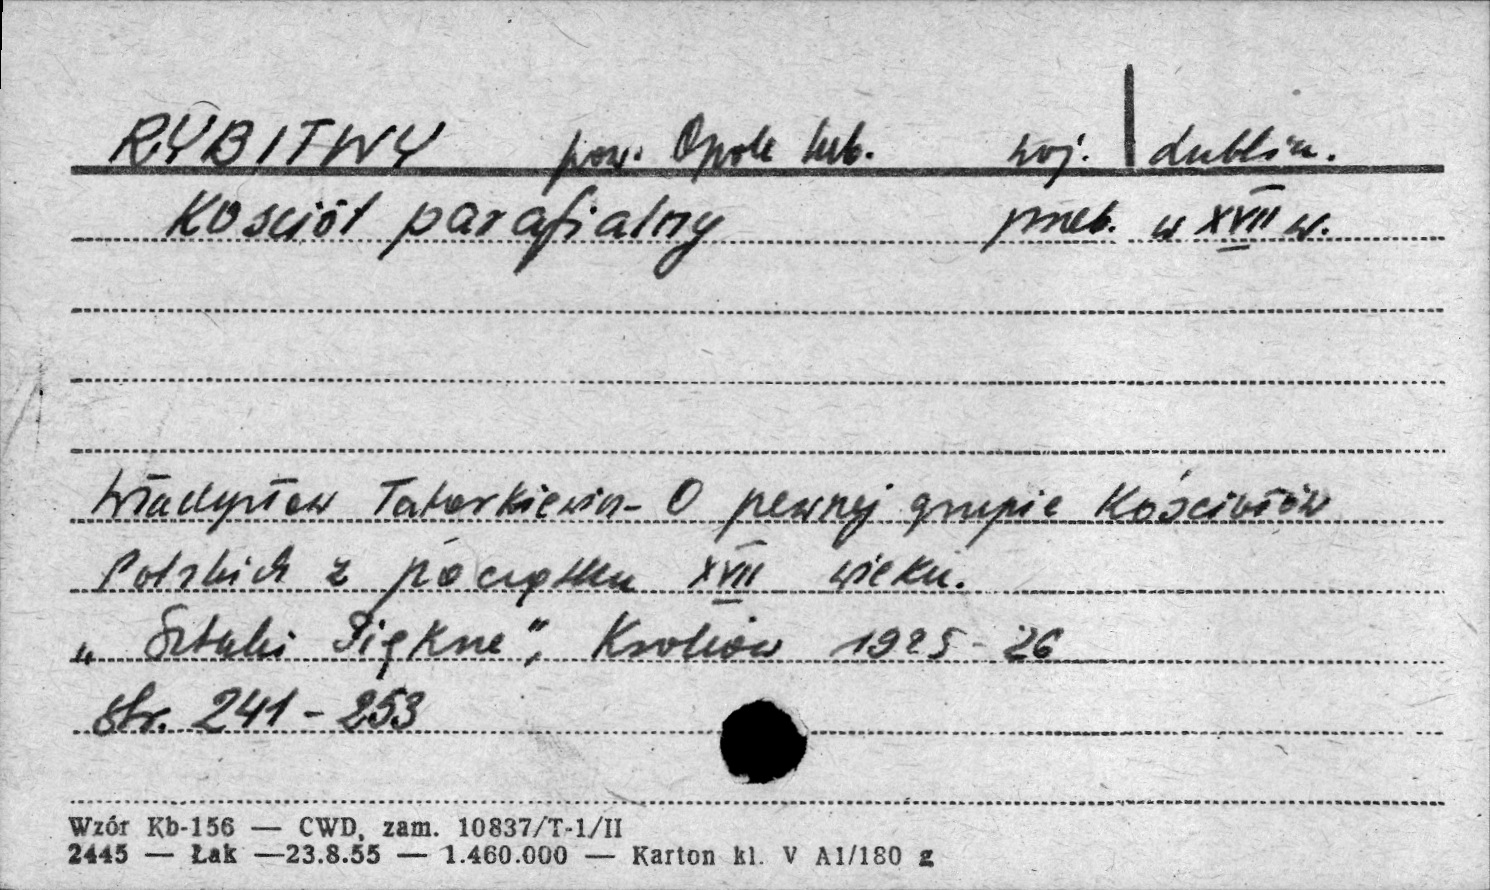 RYBITWY pow. Opole lub. woj. lublin.
Kościół parafialny przeb. w XVII w.
Władysław Tatarkiewicz - O pewnej grupie Kościołów
Polskich z początku XVII wieku.
„Sztuki Piękne”, Kraków 1925-26
str. 241-253
Wzór Kb-156 — CWD, zam. 10837/T-1/II
2445 — Łak —23.8.55 — 1.460.000 — Karton kl. V A1/180 g